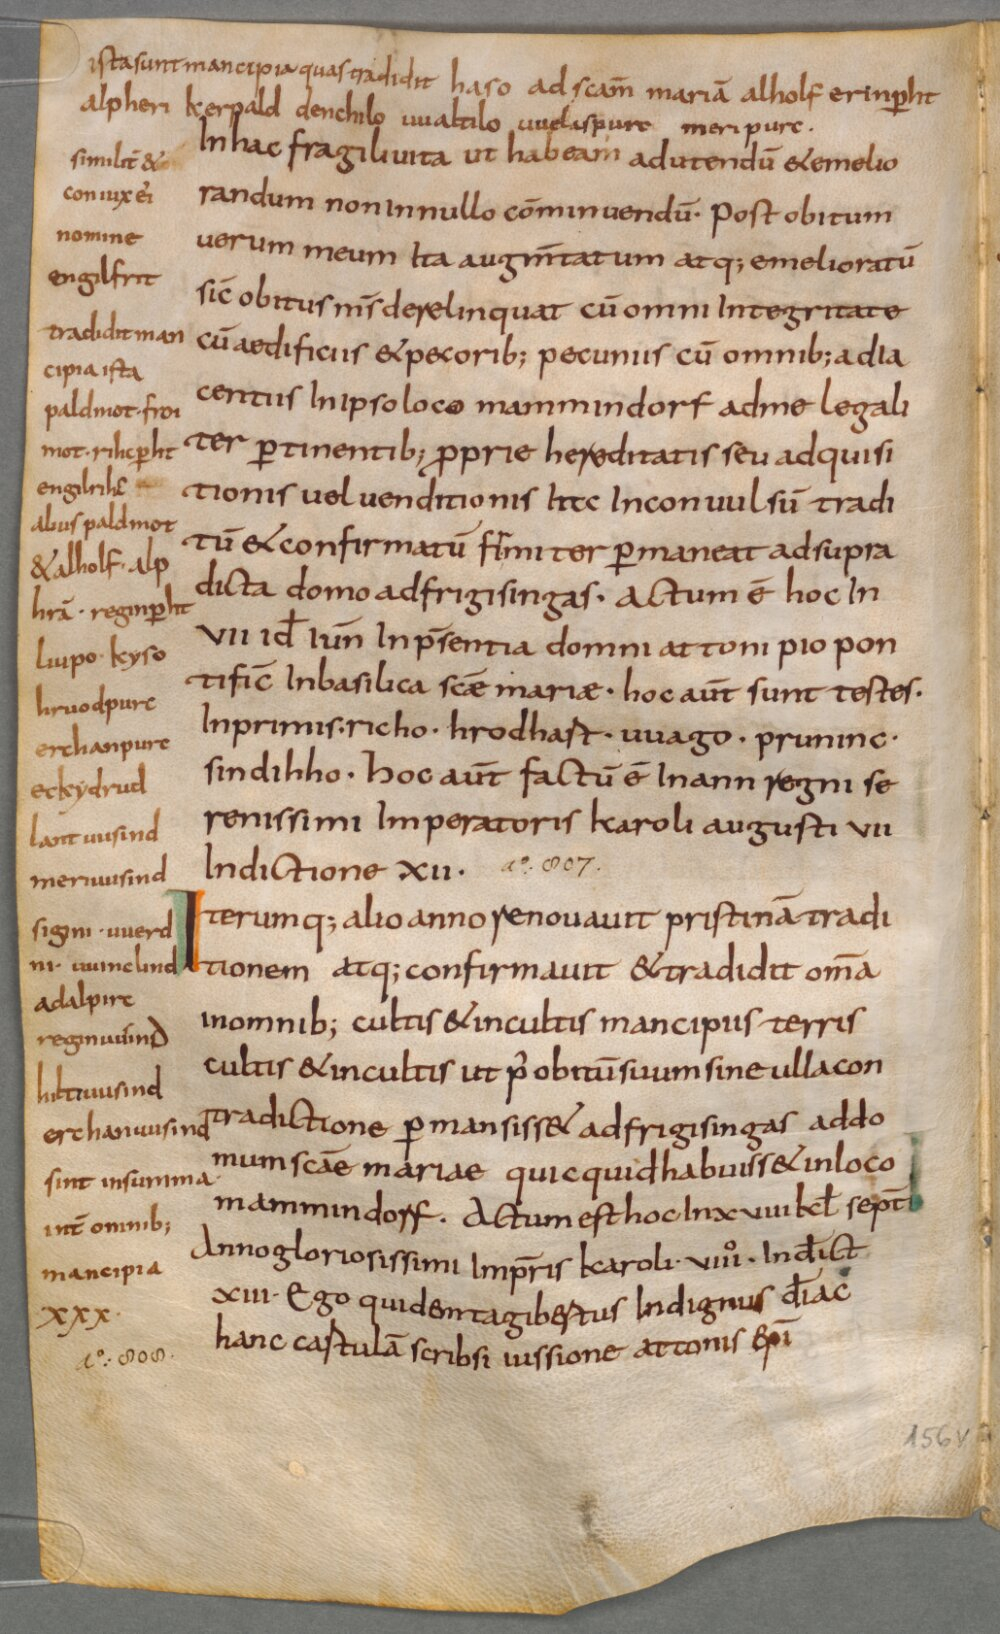 ista sunt mancipia quas tradidit haso ad scam̄ mariā alholf erinꝑht
alpheri kerpald denchilo uualtilo uuelaspurc meripurc.
In hac fragili uita ut habeam ad utendū & emelio
randum non in nullo cōminuendū. Post obitum
uerum meum Ita augm̄tatum atq; emelioratū
sic̄ obitus m̄s derelinquat cū omni Integritate
cū aedificiis & pecorib; pecuniis cū omnib; adIa
centiis In ipso loco mammindorf ad me legali
ter ꝑtinentib; ꝓprie hereditatis seu adquisi
tionis uel uenditionis hec Inconuulsū tradi
tū & confirmatū firmiter ꝑmaneat ad supra
dicta domo ad frigisingas. Actum ē hoc In
VII id Iun̄ In p̄sentia domni attoni pio pon
tific̄ In basilica scē mariæ. hoc aūt sunt testes.
In primis. richo. hrodhast. uuago. pruninc.
sindihho. Hoc aūt factū ē In ann regni se
renissimi Imperatoris karoli augusti VII
Indictione XII. aº: 807.
Iterumq; alio anno renouauit pristinā tradi
tionem atq; confirmauit & tradidit om̄a
in omnib; cultis & incultis mancipiis terris
cultis & incultis ut p̄ obitū suum sine ulla con
tradictione ꝑmansiss& ad frigisingas ad do
mum scāe mariae quicquid habuiss& in loco
mammindorf. Actum est hoc In XVIII kl septī
Anno gloriosissimi Imp̄ris karoli. VIIIº. Indict
XIII. Ego quidem tagibertus Indignus diac
hanc cartulā scribsi iussione attonis epī
similit̄ &
coniux ei
nomine
engilfrit
tradidit man
cipia ista
paldmot. froi
mot. rihcꝑht
engilrih&
abus paldmot
& alholf. alp
hrā. reginꝑht
liupo. kyso
hruodpurc
erchanpurc
eckydrud
lantuusind
meriuusind
sigini. uuerd
ni. uuinelind
adalpirc
reginuuind
hiltiuusind
erchanuusind
sint in summa
int̄ omnib;
mancipia
XXX.
aº: 808.
156v